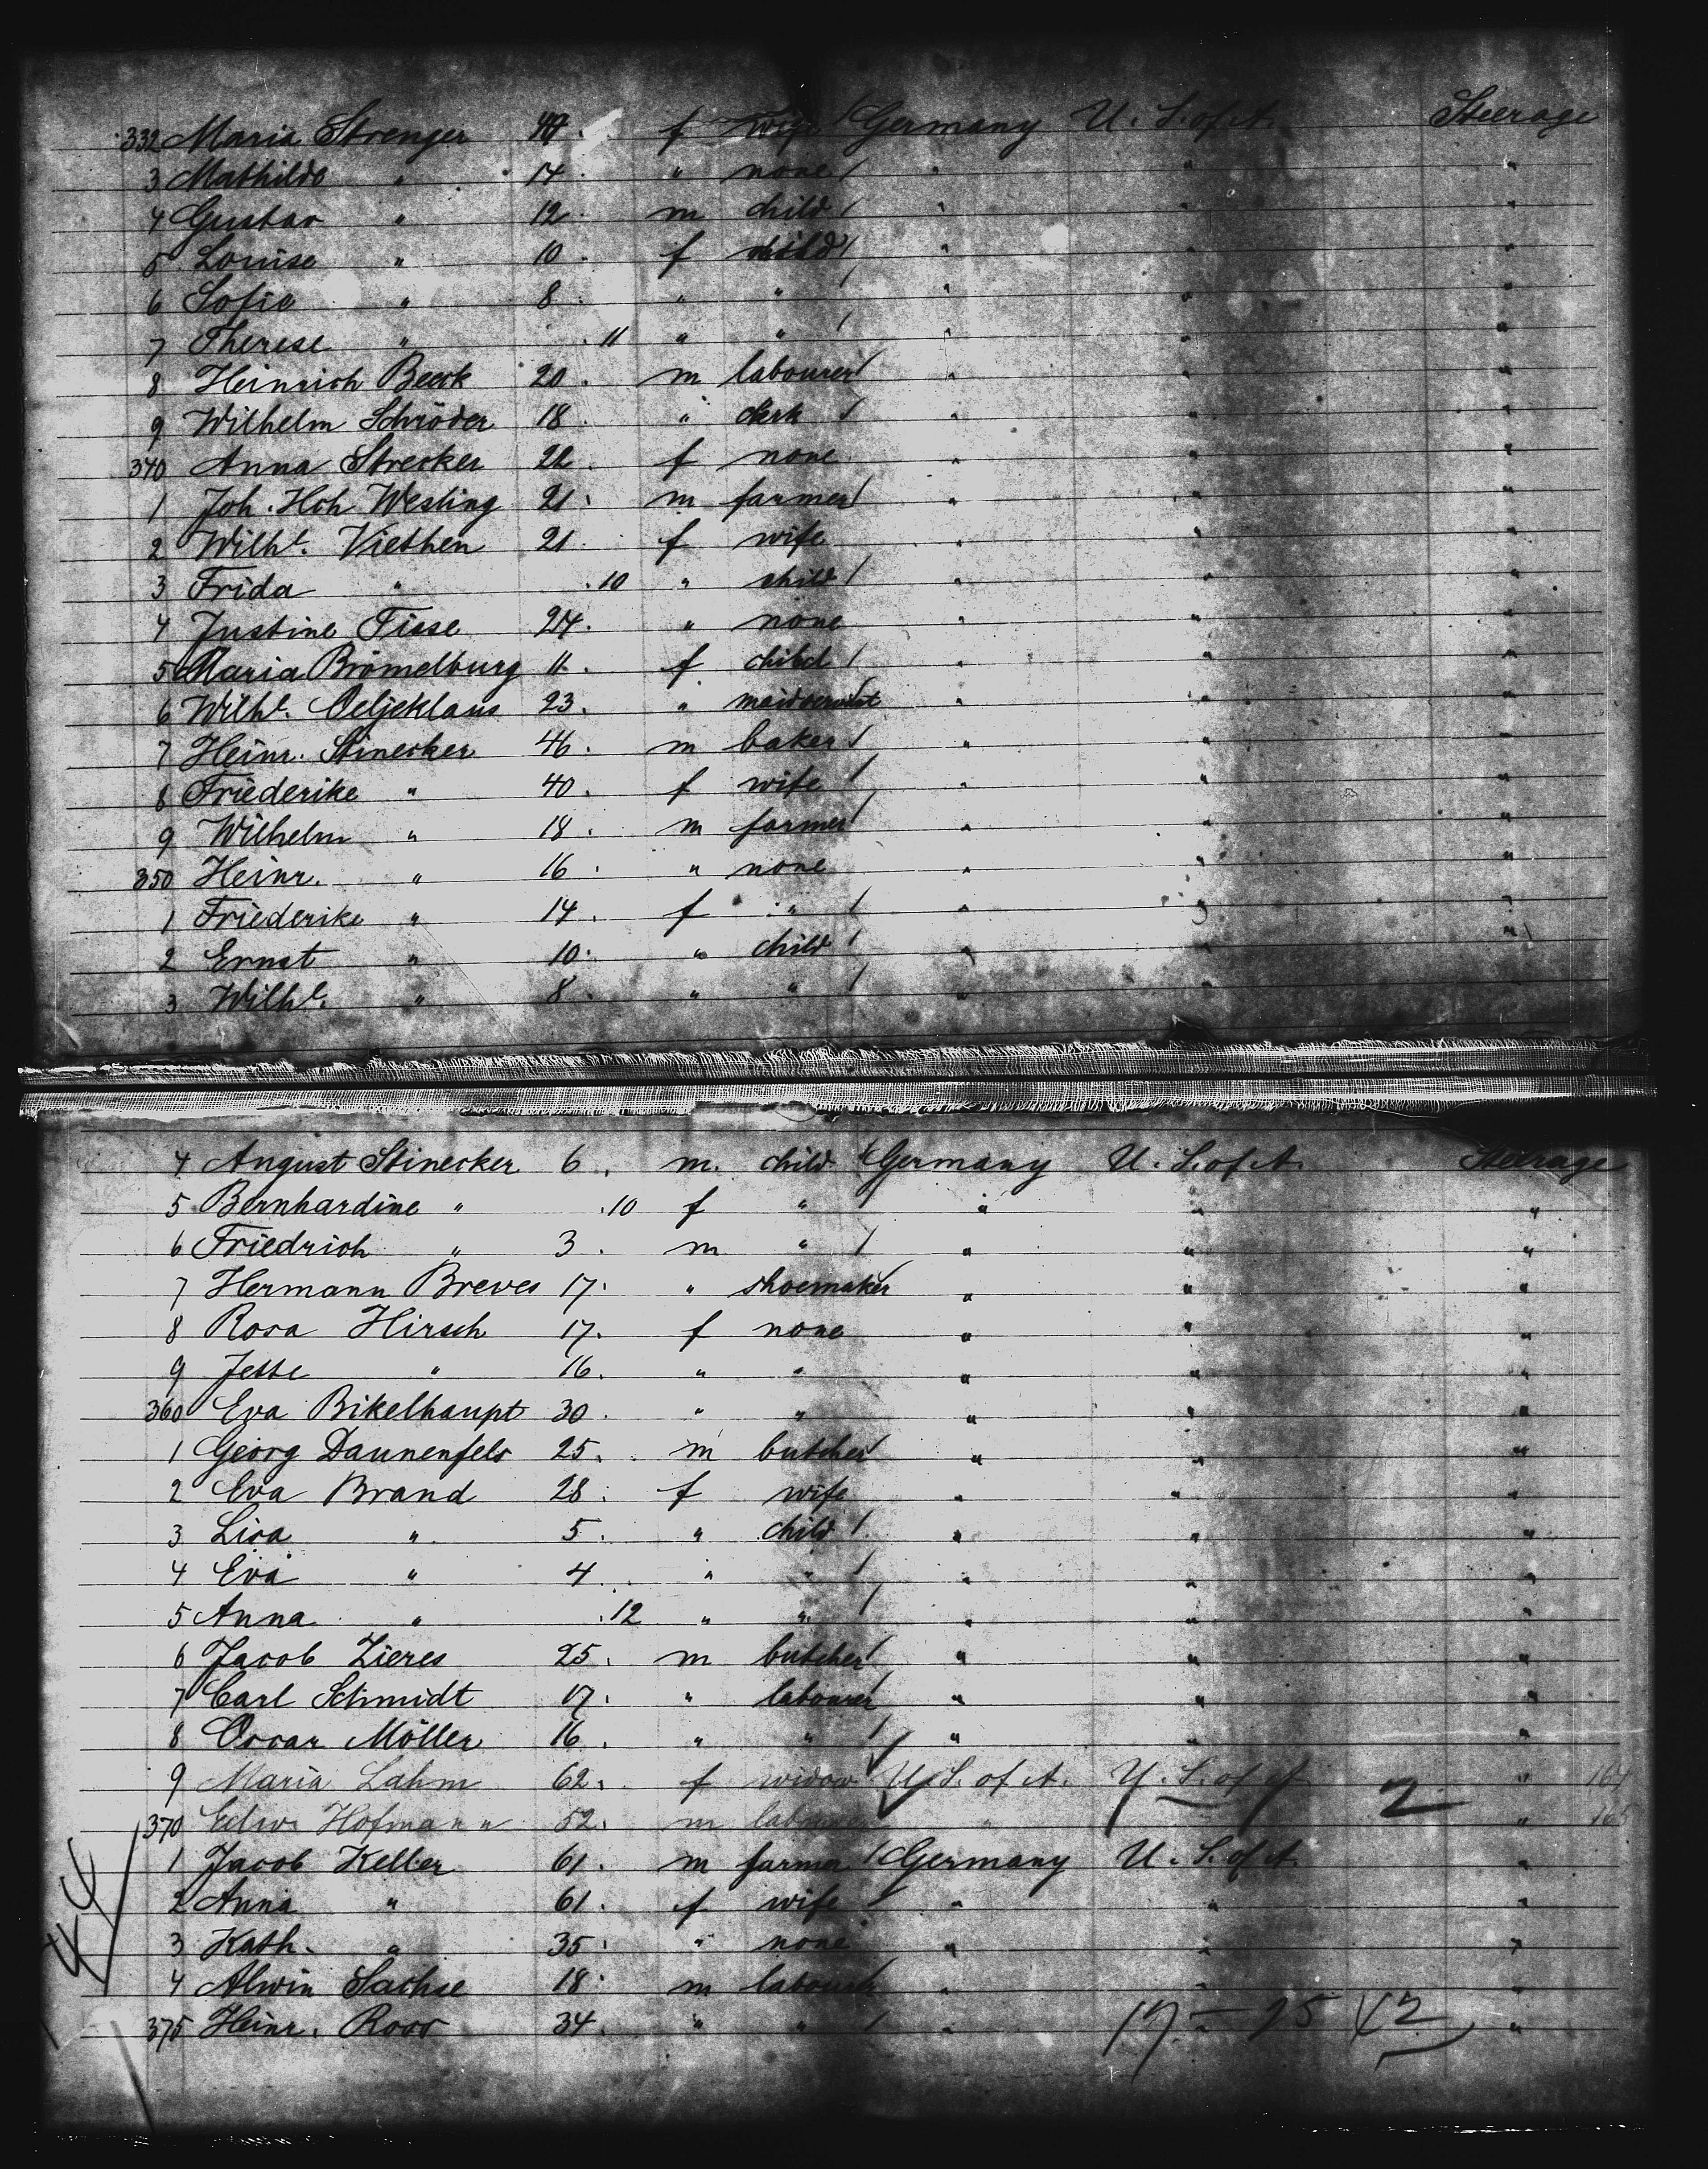 332 Maria Strenger f wife Germany U. S. of A. Steerage
3 Mathilde " 14 " none " " "
4 Gustav " 12 m child " " "
5 Louise " 10 f child " " "
6 Sofie " 8 " " " " "
7 Therese " 11 " " " " "
8 Heinrich Beeck 20 m labourer " " "
9 Wilhelm Schröder 18 " clerk " " "
340 Anna Strecker 22 f none " " "
1 Joh. Hch Westing 21 m farmer " " "
2 Wilh.e Viethen 21 f wife " " "
3 Frida " 10 " child " " "
4 Justine Tisse 24 " none " " "
5 Maria Brömelburg 11 f child " " "
6 Wilh.e Oeljeklaus 23 " " " "
7 Heinr. Stinecker 46 m baker " " "
8 Friederike " 40 f wife " " "
9 Wilhelm " 18 m farmer " " "
350 Heinr. " 16 " none " " "
1 Friederike " 14 f " " " "
2 Ernst " 10 " child " " "
3 Wilh.e " 8 " " " " "
4 August Stinecker 6 m. child Germany U. S. of A. Steerage
5 Bernhardine " 10 f " " " "
6 Friedrich " 3 m " " " "
7 Hermann Breves 17 " shoemaker " " "
8 Rosa Hirsch 17 f none " " "
9 Jette " 16 " " " " "
360 Eva Bikelhaupt 30 " " " " "
1 Georg Daunenfels 25 m butcher " " "
2 Eva Brand 28 f wife " " "
3 Lisa " 5 " child " " "
4 Eva " 4 " " " " "
5 Anna " 12 " " " " "
6 Jacob Zieres 25 m butcher " " "
7 Carl Schmidt 17 " labourer " " "
8 Oscar Möller 16 " " " " "
9 Maria Lahm 62 f widow U. S. of A. U. S. of A. 2 " 164
370 Edw. Hofmann 52 m labourer " " 165
1 Jacob Keller 61 m farmer Germany U. S. of A. "
2 Anna " 61 f wife " " "
3 Kath. " 35 " none " " "
4 Alwin Sachse 18 m labourer " " "
375 Heinr. Roos 34 " " " " "
17 - 25 (2
44